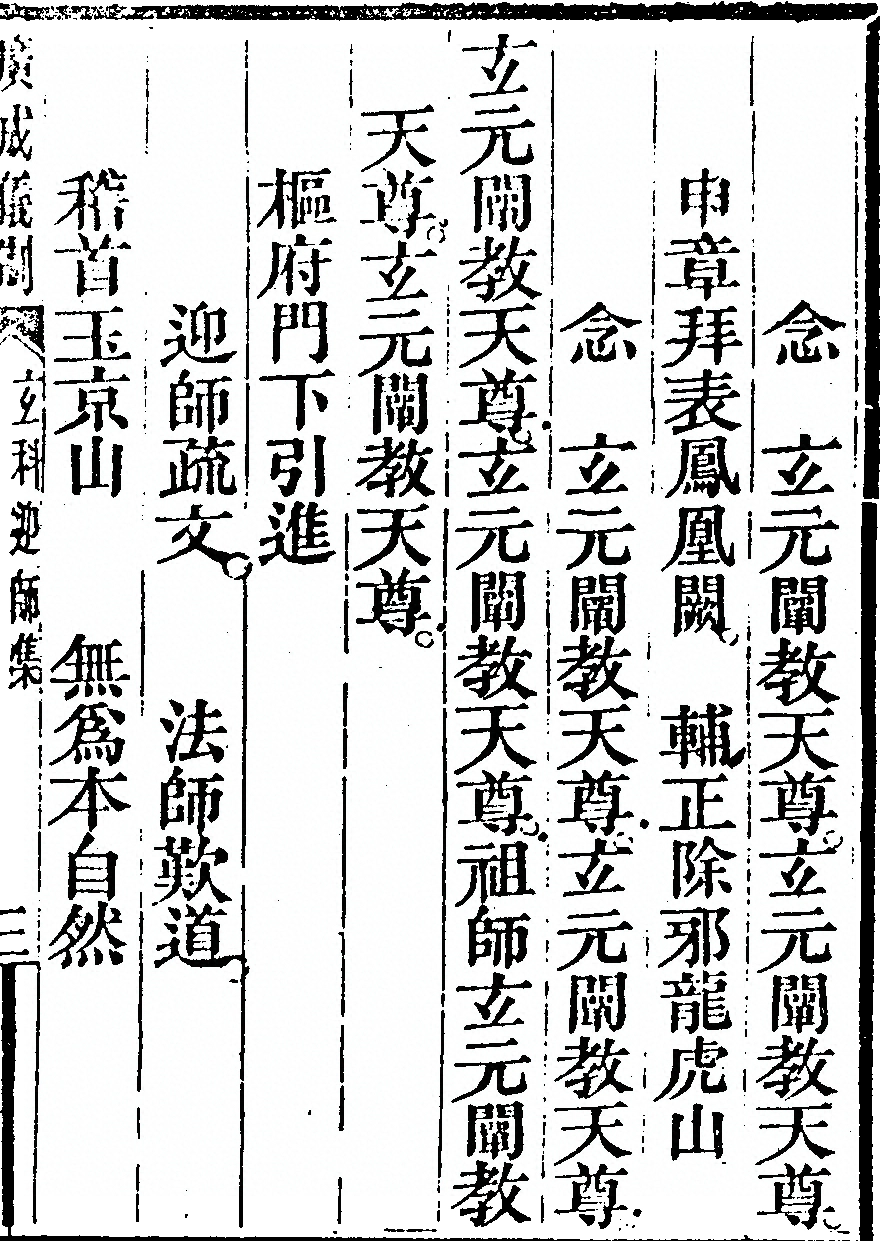 念　玄元闡教天尊玄元闡教天尊
申章拜表鳳凰闕　輔正除邪龍虎山
念　玄元闡教天尊玄元闡教天尊
玄元闡教天尊玄元闡教天尊祖師玄元闡教
天尊玄元闡教天尊
樞府門下引進
迎師疏文　法師歎道
稽首玉京山　無爲本自然
廣成儀制　玄科迎師集　三